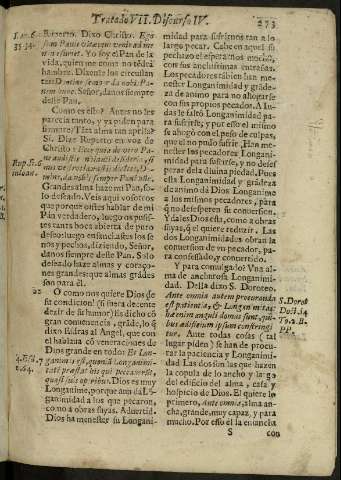 Tratado VII. Discurso IV.
273
Ruperto. Dixo Christo. Ego
sum Panis vitæ: qui venit ad me
non esuriet. Yo soy el Pan de la
vida, quien me come no tédrá
hambre. Dizenle los circunstan
tes: Domine semper da nobis Pa-
nem hunc. Señor, danos siempre
deste Pan.
Como es esso? Antes no les
parecia tanto, y ya piden para
siempre? Esta alma tan aprisa?
Si. Dize Ruperto en voz de
Christo:
Grandes alma haze mi Pan, so-
lo deseado. Veis aqui vosotros
que porque oistes hablar de mi
Pan verdadero, luego os pusis-
tes tanta boca abierta de puro
deseo: luego ensanchastes los se-
nos y pechos, diziendo, Señor,
danos siempre deste Pan. Solo
deseado haze almas y coraço-
nes grandes: que almas grādes
son para èl.
O como nos quiere Dios de
su condicion! (si fuera decente
dezir de su humor) Es dicho cō
gran conueniencia, grāde, lo q̃
dixo Esdras al Angel, que con
el hablaua cō veneraciones de
Dios grande en todo: Et Lon-
ganimis est, quoniā Longanimi-
tatē præstat his qui peccauerūt,
quasi suis operibus. Dios es muy
Longanime, porque aun dá Lō-
ganimidad a los que pecaron,
como a obras suyas. Aduertid.
Dios ha menester su Longani-
midad para sufrirnos tan a lo
largo pecar. Cabe en aquel su
pecho
con sus anchissimas entrañas.
Los pecadores tābien han me-
nester Longanimidad y grāde-
za de animo para no ahogarse
con sus propios pecados. A Iu-
das le faltó Longanimidad pa-
ra sufrirse, y por esso el mismo
se ahogó con el peso de culpas,
que el no pudo sufrir. Han me-
nester los pecadores Longani-
midad para sufrirse, y no deses-
perar de la diuina piedad. Pues
esta Longanimidad y grādeza
de animo dá Dios Longanimo
a los mismos pecadores, para
que no desesperen su conuersion.
Y dales Dios esta, como a obras
suyas, q̃ el quiere reduzir. Las
dos Longanimidades obran la
conuersion de vn pecador, pa-
ra confessado, y conuertido.
Y para comulgado? Vna al-
ma de anchurosa Longanimi-
dad. Della dixo S. Doroteo.
Ante omnia autem procuranda
est patientia, & Longanimitas;
hæ enim anguli domus sunt, qui-
bus ædificium ipsum constringi-
tur. Ante todas cosas (tal
lugar piden) se han de procu-
rar la paciencia y Longanimi-
dad. Las dos son las que hazen
la copula de lo ancho y largo
del edificio del alma, casa y
hospicio de Dios. El quiere lo
primero, Ante omnia, alma an-
cha, grande, muy capaz, y para
mucho. Por esso él la ensancha
S
con
Ioan. 6.
35 34.
Rup. l. 6.
in Ioan.
22
4. Esd. 7
S. Doroth
To. 2. B.
PP.